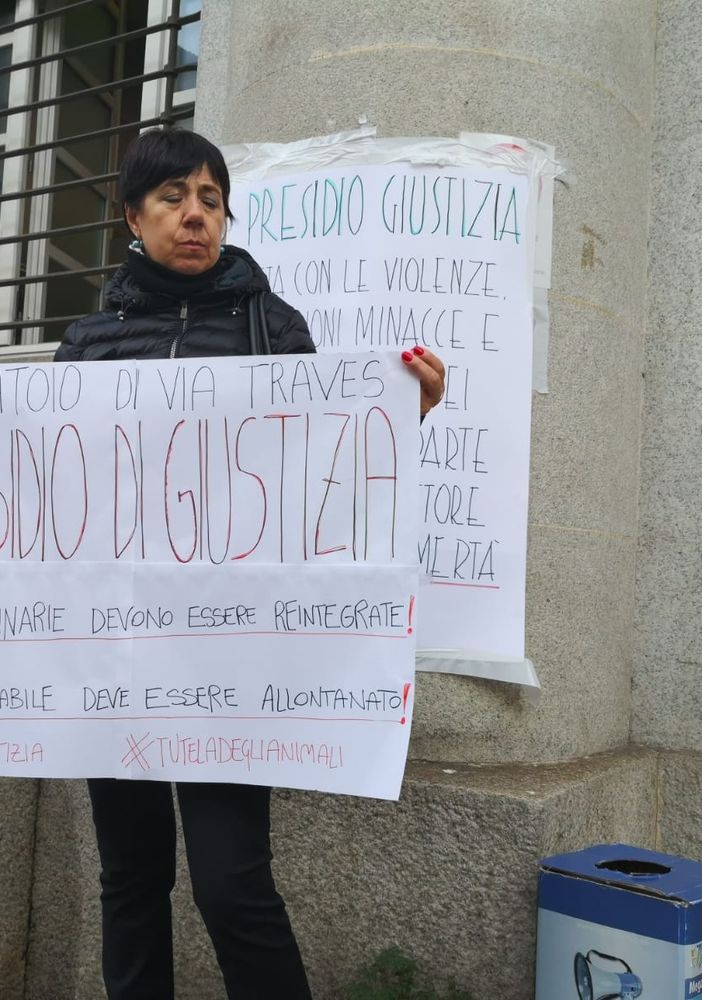 PRESIDIO GIUSTIZIA
CON LE VIOLENZE,
MINACCE E
EI
PARTE
TORE
MERTÀ
TOIO DI VIA TRAVES
SIDIO DI GIUSTIZIA
INARIE DEVONO ESSERE REINTEGRATE!
ABILE DEVE ESSERE ALLONTANATO!
TIZIA #TUTELADEGLIANIMALI